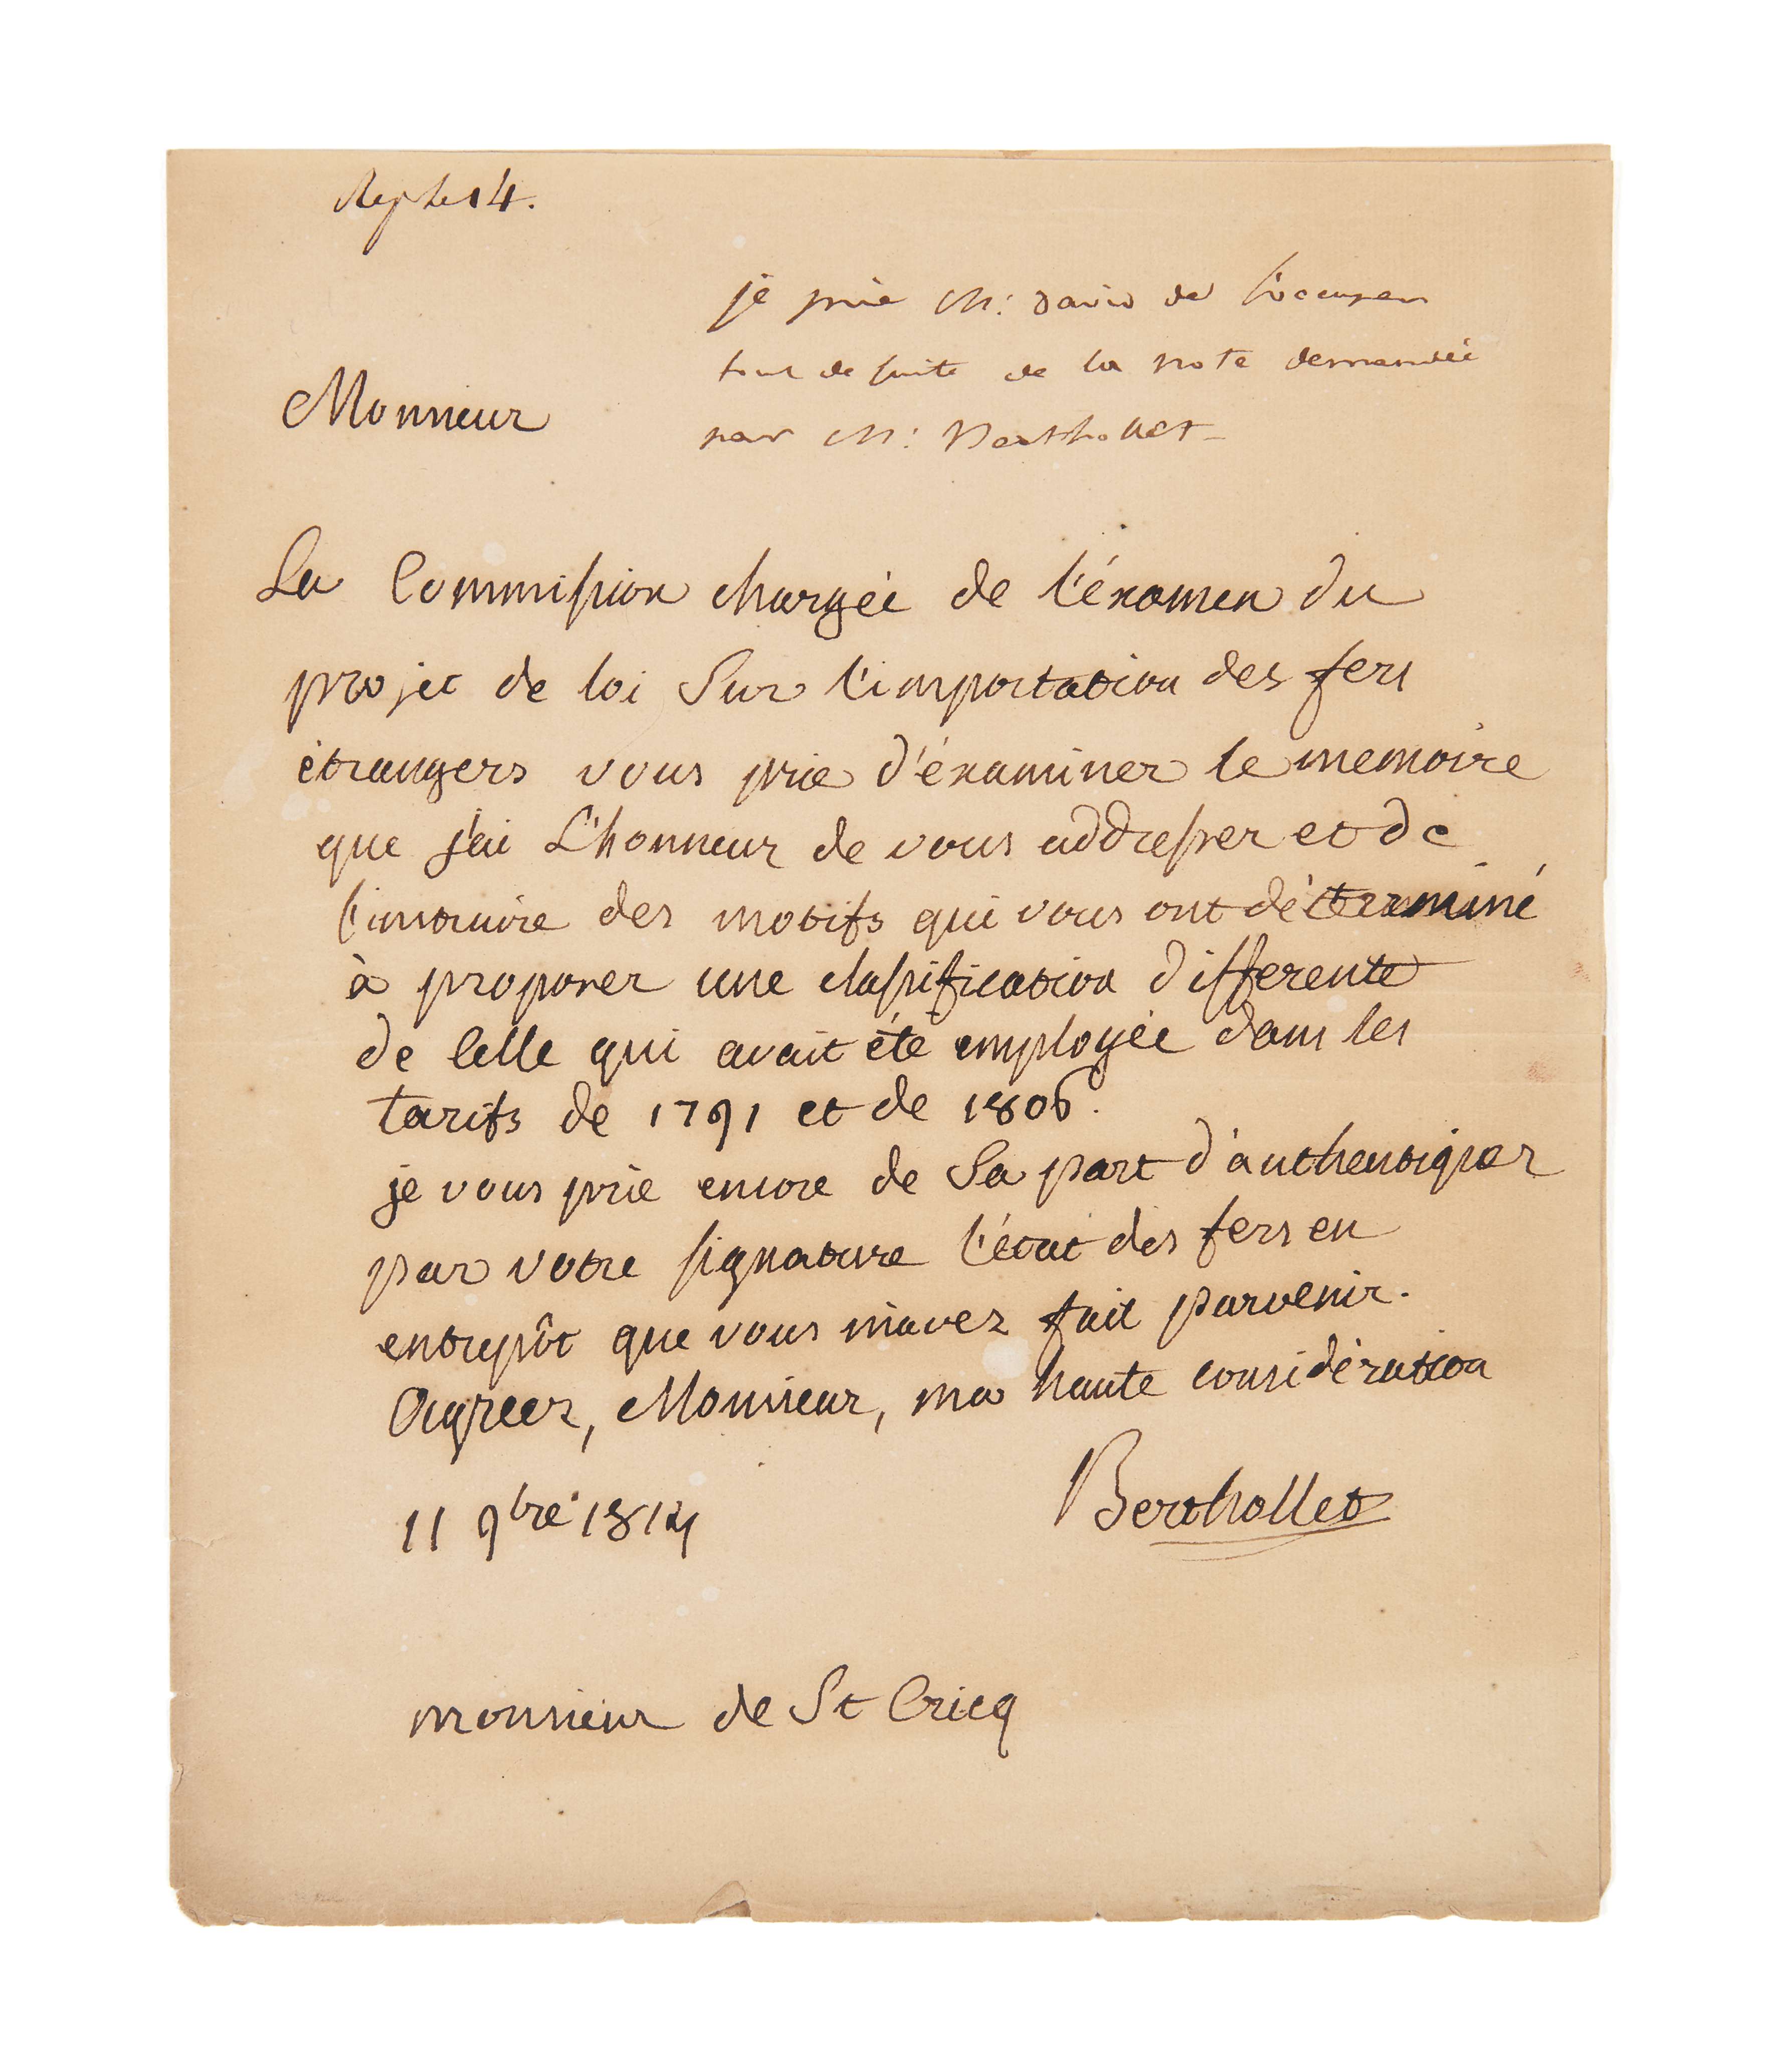 Rep le 14.
je prie M: david de s'occuper
tout de suite de la note demandée
par M: Berthollet
Monsieur
La Commission chargée de l'éxamen du
projet de loi Sur l'importation des fers
étrangers vous prie d'éxaminer le memoire
que j'ai L'honneur de vous addresser et de
l'instruire des motifs qui vous ont déterminé
à proposer une classification differente
de Celle qui avait été employée dans les
tarifs de 1791 et de 1806.
je vous prie encore de Sa part d'authentiquer
par votre signature l'état des fers en
entrepôt que vous m'avez fait parvenir.
Agreez, Monsieur, ma haute considération
Berthollet
11 9bre 1814
monsieur de St Cricq